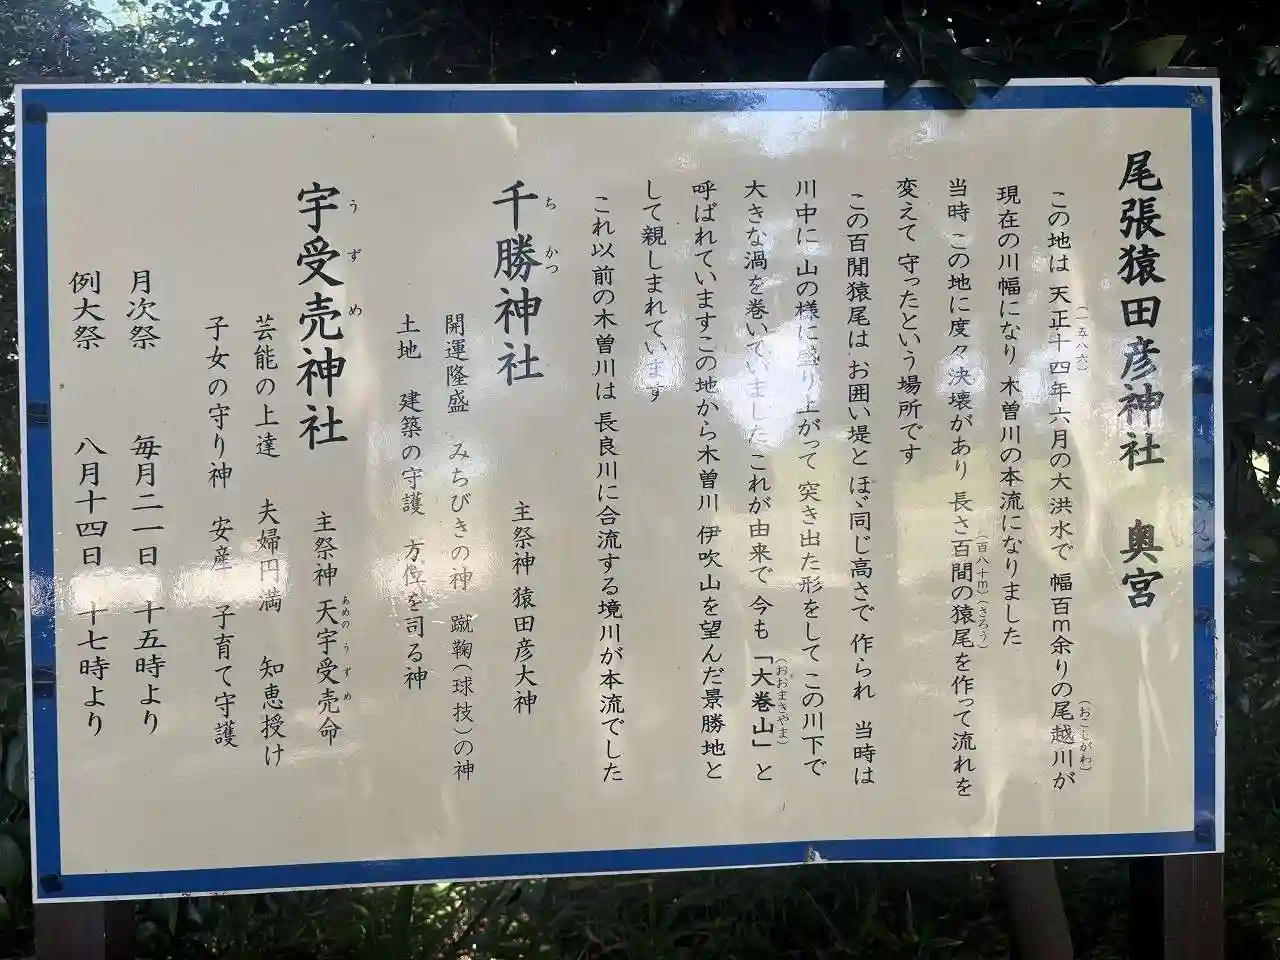 尾張猿田彦神社 奥宮
この地は 天正十四年(一五八六)六月の大洪水で 幅百m余りの尾越川(おこしがわ)が
現在の川幅になり 木曽川の本流になりました
当時 この地に度々決壊があり 長さ百間(百八十m)の猿尾(さろう)を作って流れを
変えて 守ったという場所です
この百間猿尾は お囲い堤と ほゞ同じ高さで 作られ 当時は
川中に 山の様に盛り上がって 突き出た形をして この川下で
大きな渦を巻いていました これが由来で 今も 「大巻山」(おおまきやま)と
呼ばれています この地から木曽川 伊吹山を望んだ景勝地と
して親しまれています
これ以前の木曽川は 長良川に合流する境川が本流でした
千勝神社 ちかつ 主祭神 猿田彦大神
開運隆盛 みちびきの神 蹴鞠(球技)の神
土地 建築の守護 方位を司る神
宇受売神社 うずめ 主祭神 天宇受売命 あめのうずめ
芸能の上達 夫婦円満 知恵授け
子女の守り神 安産 子育て守護
月次祭 毎月二一日 十五時より
例大祭 八月十四日 十七時より